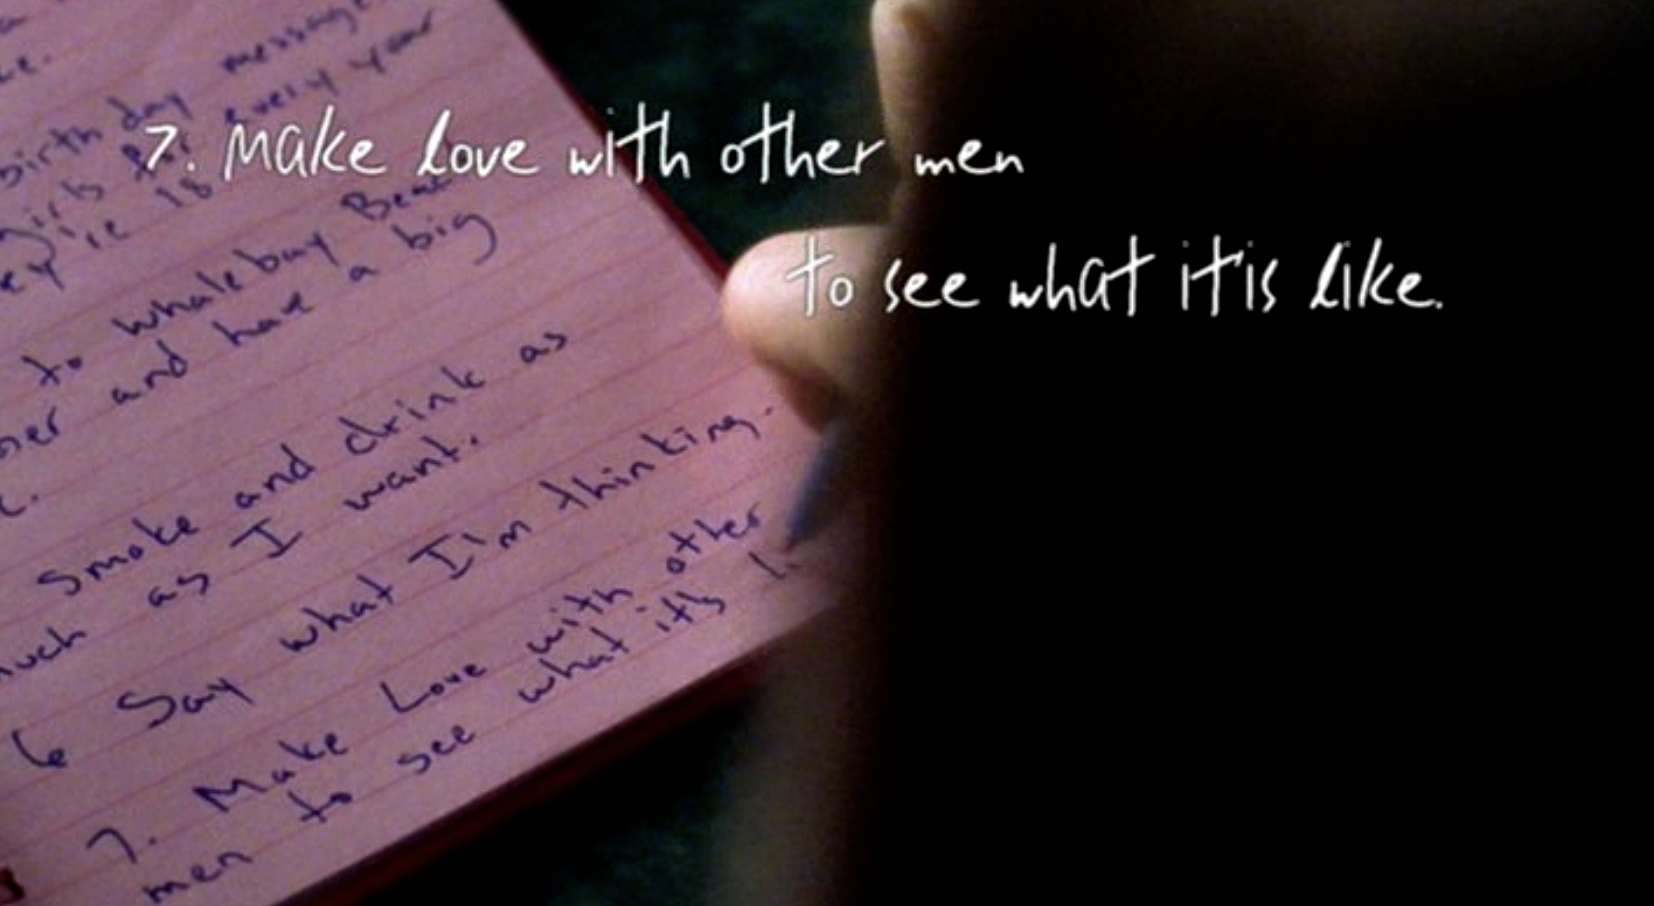 7. Make love with other men
to see what it's like.
birth day message
girls for every year
ey're 18
to whalebay Beac
ner and have a big
c.
Smoke and drink as
much as I want.
6 Say what I'm thinking.
7. Make Love with other
men to see what it's li